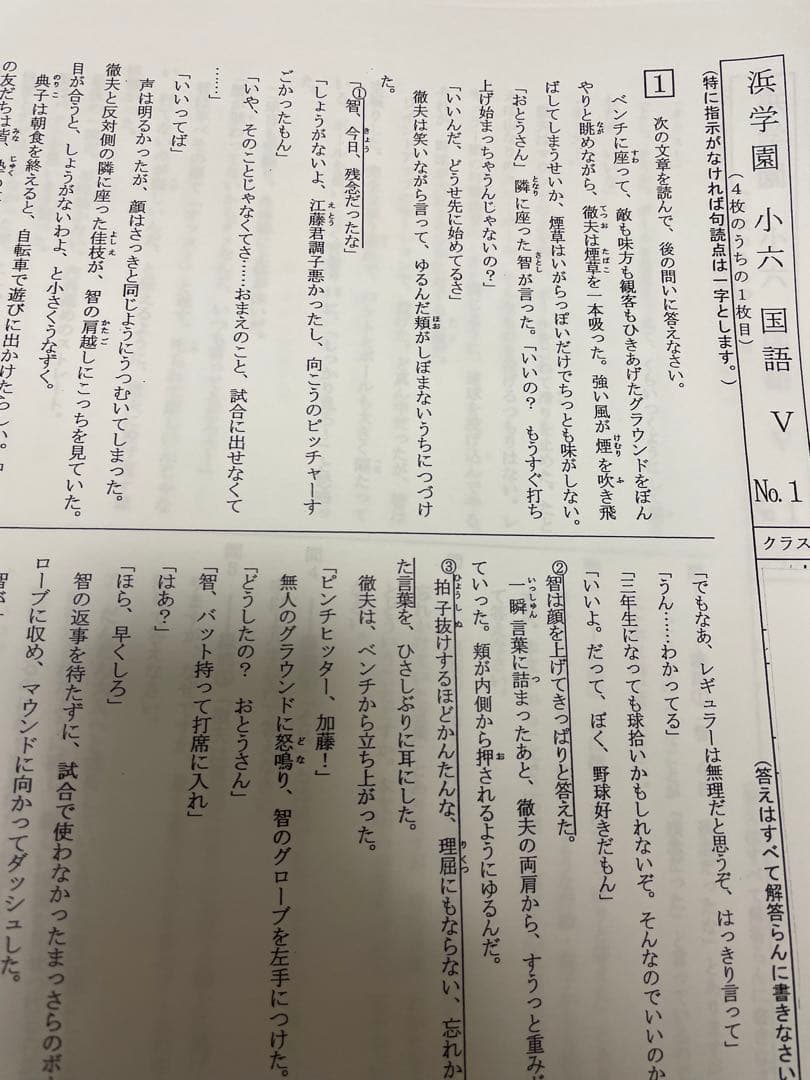 浜学園 小六 国語 Ⅴ No.1
(4枚のうちの1枚目)
(特に指示がなければ句読点は一字とします。)
クラス
(答えはすべて解答らんに書きなさい
1 次の文章を読んで、後の問いに答えなさい。
ベンチに座って、敵も味方も観客もひきあげたグラウンドをぼん
やりと眺めながら、徹夫は煙草を一本吸った。強い風が煙を吹き飛
ばしてしまうせいか、煙草はいがらっぽいだけでちっとも味がしない。
「おとうさん」隣に座った智が言った。「いいの? もうすぐ打ち
上げ始まっちゃうんじゃないの?」
「いいんだ、どうせ先に始めてるさ」
徹夫は笑いながら言って、ゆるんだ頬がしぼまないうちにつづけ
た。
「①智、今日、残念だったな」
「しょうがないよ、江藤君調子悪かったし、向こうのピッチャーす
ごかったもん」
「いや、そのことじゃなくてさ……おまえのこと、試合に出せなくて
……」
「いいってば」
声は明るかったが、顔はさっきと同じようにうつむいてしまった。
徹夫と反対側の隣に座った佳枝が、智の肩越しにこっちを見ていた。
目が合うと、しょうがないわよ、と小さくうなずく。
典子は朝食を終えると、自転車で遊びに出かけたらしい。
の友だちは皆、
「でもなあ、レギュラーは無理だと思うぞ、はっきり言って」
「うん……わかってる」
「三年生になっても球拾いかもしれないぞ。そんなのでいいのか
「いいよ。だって、ぼく、野球好きだもん」
②智は顔を上げてきっぱりと答えた。
一瞬言葉に詰まったあと、徹夫の両肩から、すうっと重みが
ていった。頬が内側から押されるようにゆるんだ。
③拍子抜けするほどかんたんな、理屈にもならない、忘れか
た言葉を、ひさしぶりに耳にした。
徹夫は、ベンチから立ち上がった。
「ピンチヒッター、加藤!」
無人のグラウンドに怒鳴り、智のグローブを左手につけた。
「どうしたの? おとうさん」
「智、バット持って打席に入れ」
「はあ?」
「ほら、早くしろ」
智の返事を待たずに、試合で使わなかったまっさらのボ
ローブに収め、マウンドに向かってダッシュした。